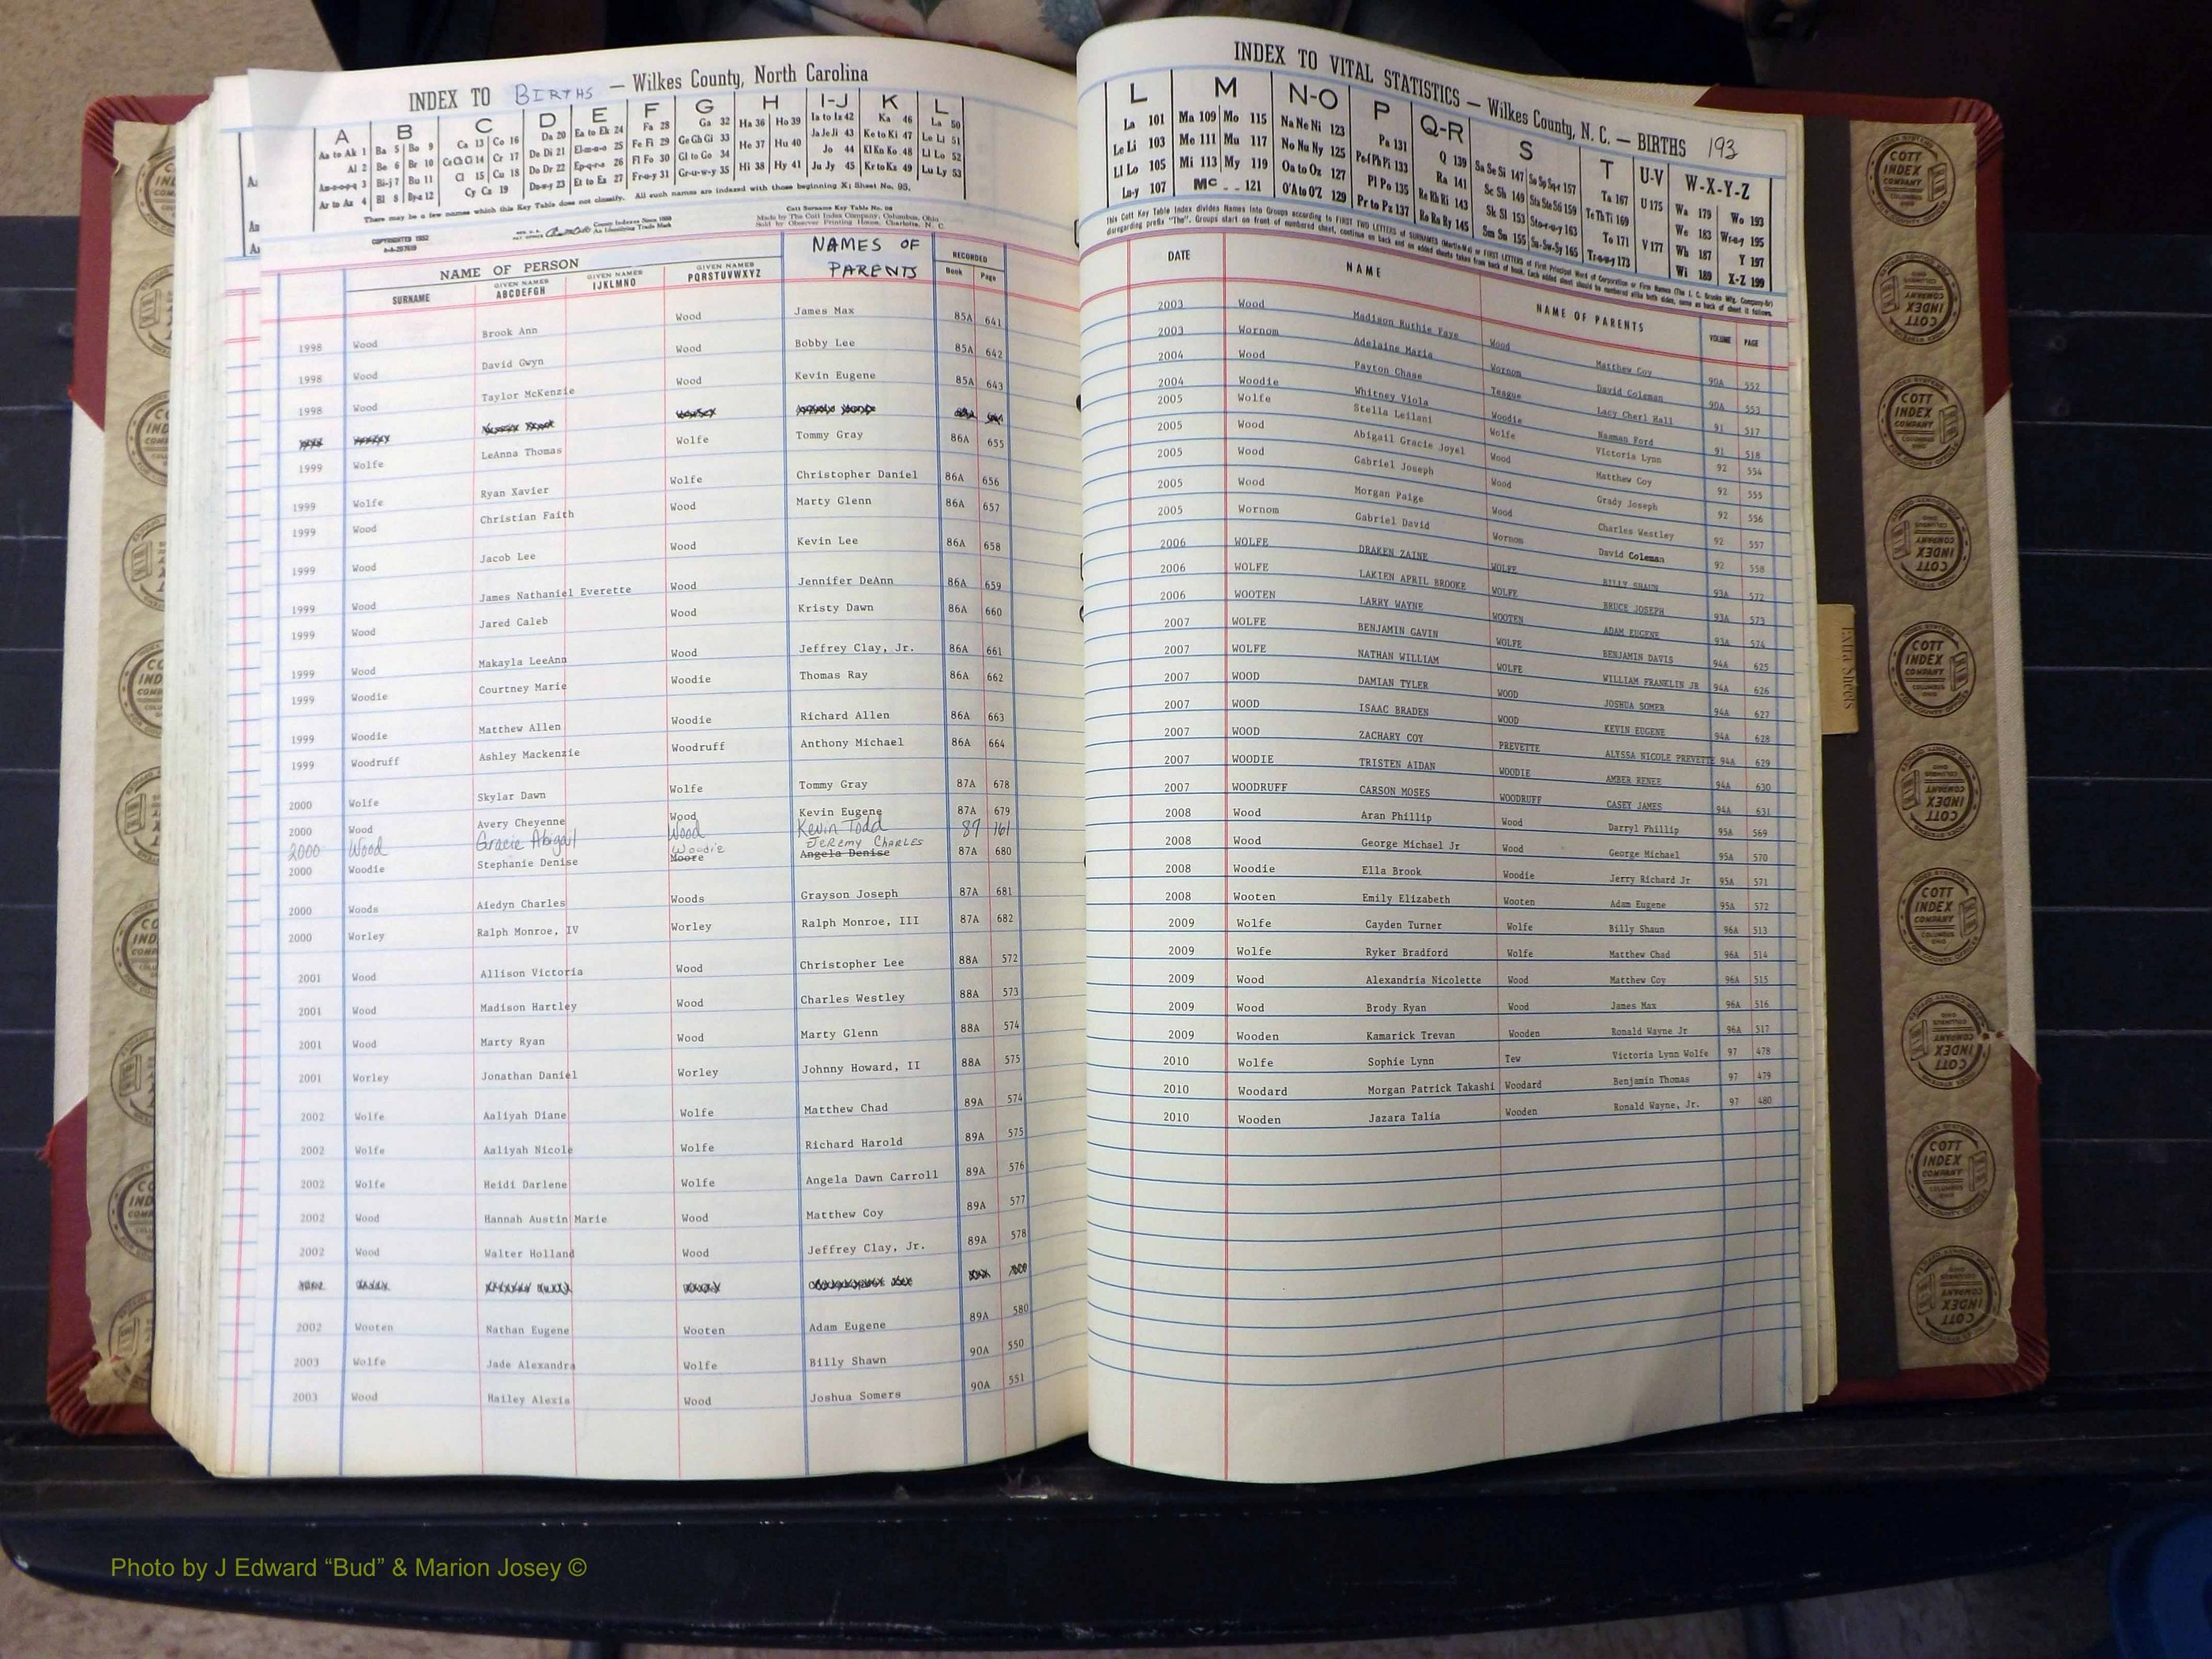 INDEX TO BIRTHS — Wilkes County, North Carolina
A B C D E F G H I-J K L
Aa to Ak 1 Ba 5 Bo 9 Ca 13 Co 16 Da 20 Ea to Ek 24 Fa 28 Ga 32 Ha 36 Ho 39 Ia to Ia 42 Ka 46 La 50
Al 2 Be 6 Br 10 Ce Ch Ci 14 Cr 17 De Di 21 El-m-n-o 25 Fe Fi 29 Ge Gh Gi 33 He 37 Hu 40 Ja Je Ji 43 Ke to Ki 47 Le Li 51
Am-n-o-p-q 3 Bi-j 7 Bu 11 Cl 15 Cu 18 Do Dr 22 Ep-q-r-s 26 Fl Fo 30 Gl to Go 34 Hi 38 Hy 41 Jo 44 Kl Kn Ko 48 Ll Lo 52
Ar to Az 4 Bl 8 By-z 12 Cy Cz 19 Du-w-y 23 Et to Ez 27 Fr-u-y 31 Gr-u-w-y 35 Ju Jy 45 Kr to Kz 49 Lu Ly 53
There may be a few names which this Key Table does not classify. All such names are indexed with those beginning X; Sheet No. 95.
COPYRIGHTED 1952
Cott Surname Key Table No.
Made by The Cott Index Company, Columbus, Ohio
Sold by Observer Printing House, Charlotte, N. C.
NAME OF PERSON NAMES OF PARENTS RECORDED
SURNAME GIVEN NAMES ABCDEFGH GIVEN NAMES IJKLMNO GIVEN NAMES PQRSTUVWXYZ Book Page
1998 Wood Brook Ann Wood James Max 85A 641
1998 Wood David Gwyn Wood Bobby Lee 85A 642
1998 Wood Taylor McKenzie Wood Kevin Eugene 85A 643
1999 Wolfe LeAnna Thomas Wolfe Tommy Gray 86A 655
1999 Wolfe Ryan Xavier Wolfe Christopher Daniel 86A 656
1999 Wood Christian Faith Wood Marty Glenn 86A 657
1999 Wood Jacob Lee Wood Kevin Lee 86A 658
1999 Wood James Nathaniel Everette Wood Jennifer DeAnn 86A 659
1999 Wood Jared Caleb Wood Kristy Dawn 86A 660
1999 Wood Makayla LeeAnn Wood Jeffrey Clay, Jr. 86A 661
1999 Woodie Courtney Marie Woodie Thomas Ray 86A 662
1999 Woodie Matthew Allen Woodie Richard Allen 86A 663
1999 Woodruff Ashley Mackenzie Woodruff Anthony Michael 86A 664
2000 Wolfe Skylar Dawn Wolfe Tommy Gray 87A 678
2000 Wood Avery Cheyenne Wood Kevin Eugene 87A 679
2000 Wood Gracie Abigail Wood Kevin Todd 87 161
Woodie JEREMY CHARLES
2000 Woodie Stephanie Denise Moore Angela Denise 87A 680
2000 Woods Aiedyn Charles Woods Grayson Joseph 87A 681
2000 Worley Ralph Monroe, IV Worley Ralph Monroe, III 87A 682
2001 Wood Allison Victoria Wood Christopher Lee 88A 572
2001 Wood Madison Hartley Wood Charles Westley 88A 573
2001 Wood Marty Ryan Wood Marty Glenn 88A 574
2001 Worley Jonathan Daniel Worley Johnny Howard, II 88A 575
2002 Wolfe Aaliyah Diane Wolfe Matthew Chad 89A 574
2002 Wolfe Aaliyah Nicole Wolfe Richard Harold 89A 575
2002 Wolfe Heidi Darlene Wolfe Angela Dawn Carroll 89A 576
2002 Wood Hannah Austin Marie Wood Matthew Coy 89A 577
2002 Wood Walter Holland Wood Jeffrey Clay, Jr. 89A 578
2002 Wooten Nathan Eugene Wooten Adam Eugene 89A 580
2003 Wolfe Jade Alexandra Wolfe Billy Shawn 90A 550
2003 Wood Hailey Alexis Wood Joshua Somers 90A 551
INDEX TO VITAL STATISTICS — Wilkes County, N. C. — BIRTHS 193
L M N-O P Q-R S T U-V W-X-Y-Z
La 101 Ma 109 Mo 115 Na Ne Ni 123 Pa 131 Q 139 Sa Se Si 147 So Sp Sq-r 157 Ta 167 U 175 Wa 179 Wo 193
Le Li 103 Me 111 Mu 117 No Nu Ny 125 Pe-f Ph Pi 133 Ra 141 Sc Sh 149 Sta Ste Sti 159 Te Th Ti 169 We 183 Wr-u-y 195
Ll Lo 105 Mi 113 My 119 Oa to Oz 127 Pl Po 135 Re Rh Ri 143 Sk Sl 153 Sto-r-u-y 163 To 171 V 177 Wh 187 Y 197
Lu-y 107 Mc 121 O'A to O'Z 129 Pr to Pz 137 Ro Ru Ry 145 Sm Sn 155 Su-Sw-Sy 165 Tr-u-w-y 173 Wi 189 X-Z 199
DATE NAME NAME OF PARENTS VOLUME PAGE
2003 Wood Madison Ruthie Faye Wood Matthew Coy 90A 552
2003 Wornom Adelaine Maria Wornom David Coleman 90A 553
2004 Wood Payton Chase Teague Lacy Cherl Hall 91 517
2004 Woodie Whitney Viola Woodie Naaman Ford 91 518
2005 Wolfe Stella Leilani Wolfe Victoria Lynn 92 554
2005 Wood Abigail Gracie Joyel Wood Matthew Coy 92 555
2005 Wood Gabriel Joseph Wood Grady Joseph 92 556
2005 Wood Morgan Paige Wood Charles Westley 92 557
2005 Wornom Gabriel David Wornom David Coleman 92 558
2006 WOLFE DRAKEN ZAINE WOLFE BILLY SHAUN 93A 572
2006 WOLFE LAKIEN APRIL BROOKE WOLFE BRUCE JOSEPH 93A 573
2006 WOOTEN LARRY WAYNE WOOTEN ADAM EUGENE 93A 574
2007 WOLFE BENJAMIN GAVIN WOLFE BENJAMIN DAVIS 94A 625
2007 WOLFE NATHAN WILLIAM WOLFE WILLIAM FRANKLIN JR 94A 626
2007 WOOD DAMIAN TYLER WOOD JOSHUA SOMER 94A 627
2007 WOOD ISAAC BRADEN WOOD KEVIN EUGENE 94A 628
2007 WOOD ZACHARY COY PREVETTE ALYSSA NICOLE PREVETTE 94A 629
2007 WOODIE TRISTEN AIDAN WOODIE AMBER RENEE 94A 630
2007 WOODRUFF CARSON MOSES WOODRUFF CASEY JAMES 94A 631
2008 Wood Aran Phillip Wood Darryl Phillip 95A 569
2008 Wood George Michael Jr Wood George Michael 95A 570
2008 Woodie Ella Brook Woodie Jerry Richard Jr 95A 571
2008 Wooten Emily Elizabeth Wooten Adam Eugene 95A 572
2009 Wolfe Cayden Turner Wolfe Billy Shaun 96A 513
2009 Wolfe Ryker Bradford Wolfe Matthew Chad 96A 514
2009 Wood Alexandria Nicolette Wood Matthew Coy 96A 515
2009 Wood Brody Ryan Wood James Max 96A 516
2009 Wooden Kamarick Trevan Wooden Ronald Wayne Jr 96A 517
2010 Wolfe Sophie Lynn Tew Victoria Lynn Wolfe 97 478
2010 Woodard Morgan Patrick Takashi Woodard Benjamin Thomas 97 479
2010 Wooden Jazara Talia Wooden Ronald Wayne, Jr. 97 480
Extra Sheets
COTT INDEX COMPANY
Photo by J Edward “Bud” & Marion Josey ©